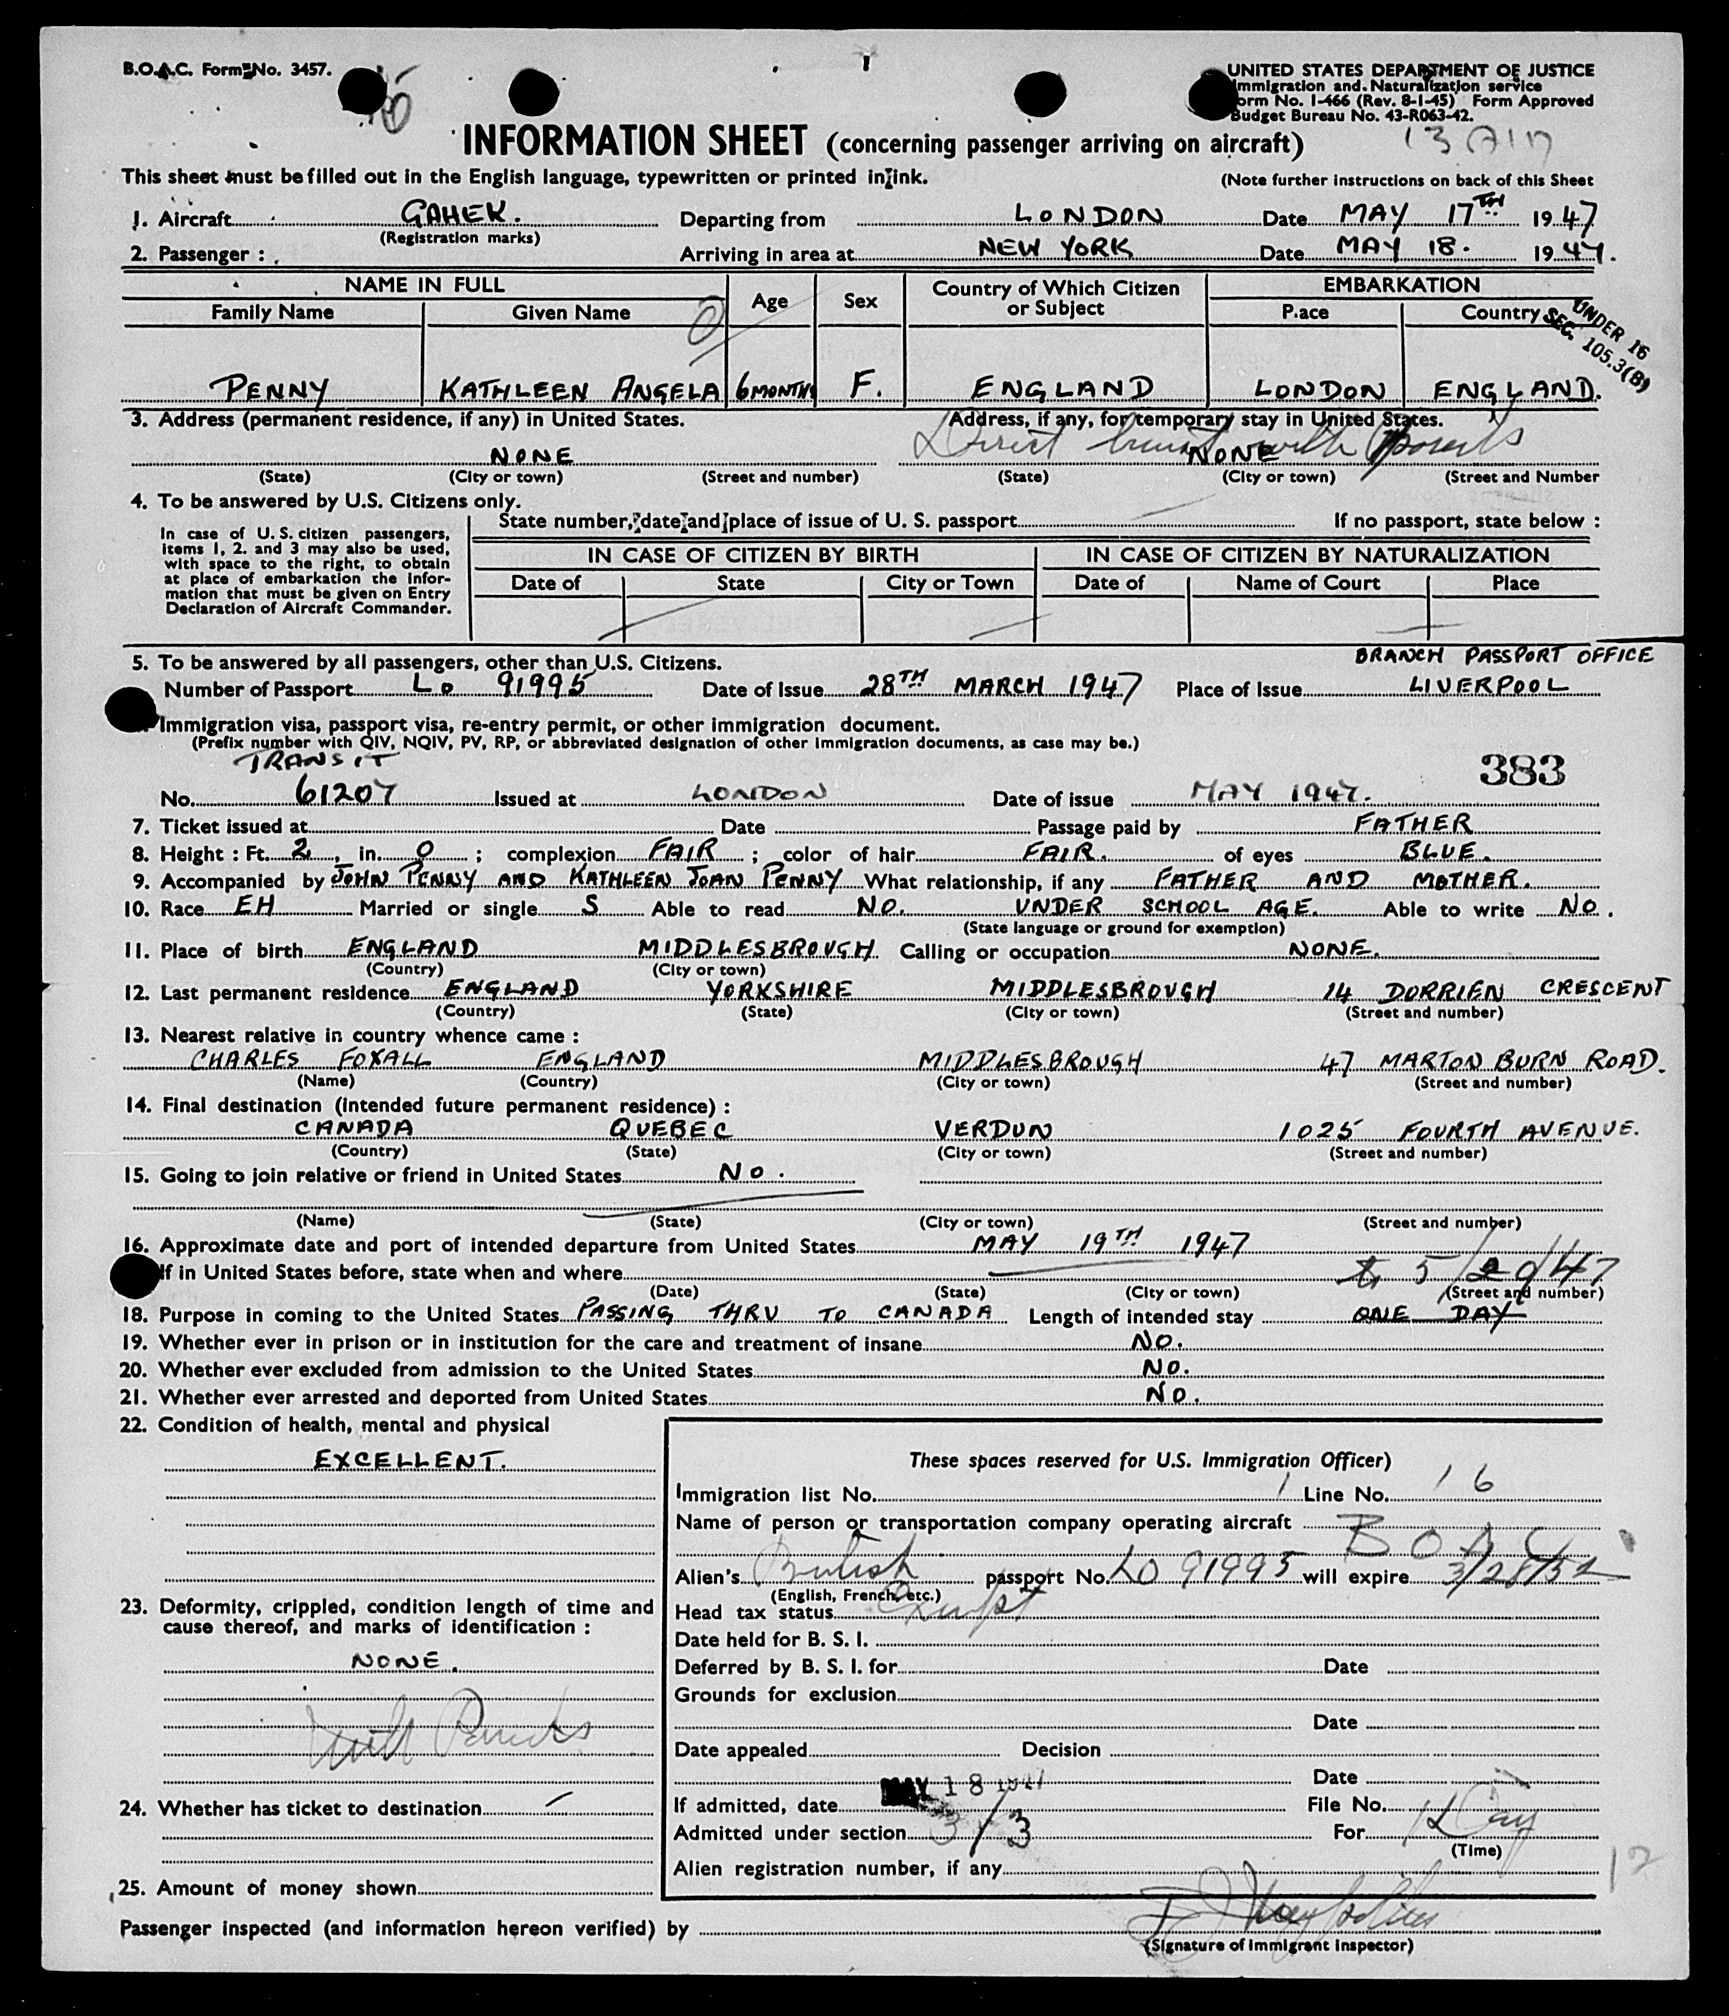 B.O.A.C. Form No. 3457.
UNITED STATES DEPARTMENT OF JUSTICE
Immigration and Naturalization service
Form No. I-466 (Rev. 8-1-45) Form Approved
Budget Bureau No. 43-R063-42.
INFORMATION SHEET (concerning passenger arriving on aircraft)
This sheet must be filled out in the English language, typewritten or printed in ink.
(Note further instructions on back of this Sheet
1. Aircraft GAHEK. Departing from LONDON Date MAY 17TH 1947
(Registration marks)
2. Passenger : Arriving in area at NEW YORK Date MAY 18. 1947.
NAME IN FULL Age Sex Country of Which Citizen or Subject EMBARKATION
Family Name Given Name Place Country
UNDER 16
SEC. 105.3(B)
PENNY KATHLEEN ANGELA 6 MONTHS F. ENGLAND LONDON ENGLAND.
3. Address (permanent residence, if any) in United States. Address, if any, for temporary stay in United States.
Direct transit with parents
NONE NONE
(State) (City or town) (Street and number) (State) (City or town) (Street and Number
4. To be answered by U.S. Citizens only.
In case of U. S. citizen passengers, items 1, 2. and 3 may also be used, with space to the right, to obtain at place of embarkation the information that must be given on Entry Declaration of Aircraft Commander.
State number, date and place of issue of U. S. passport If no passport, state below :
IN CASE OF CITIZEN BY BIRTH IN CASE OF CITIZEN BY NATURALIZATION
Date of State City or Town Date of Name of Court Place
5. To be answered by all passengers, other than U.S. Citizens. BRANCH PASSPORT OFFICE
Number of Passport Lo 91995 Date of Issue 28TH MARCH 1947 Place of Issue LIVERPOOL
Immigration visa, passport visa, re-entry permit, or other immigration document.
(Prefix number with QIV, NQIV, PV, RP, or abbreviated designation of other immigration documents, as case may be.)
TRANSIT
383
No. 61207 Issued at LONDON Date of issue MAY 1947.
7. Ticket issued at Date Passage paid by FATHER
8. Height : Ft. 2 , in. 0 ; complexion FAIR ; color of hair FAIR. of eyes BLUE.
9. Accompanied by JOHN PENNY AND KATHLEEN JOAN PENNY What relationship, if any FATHER AND MOTHER.
10. Race EH Married or single S Able to read NO. UNDER SCHOOL AGE. Able to write NO.
(State language or ground for exemption)
11. Place of birth ENGLAND MIDDLESBROUGH. Calling or occupation NONE.
(Country) (City or town)
12. Last permanent residence ENGLAND YORKSHIRE MIDDLESBROUGH 14 DORRIEN CRESCENT
(Country) (State) (City or town) (Street and number)
13. Nearest relative in country whence came :
CHARLES FOXALL ENGLAND MIDDLESBROUGH 47 MARTON BURN ROAD.
(Name) (Country) (City or town) (Street and number)
14. Final destination (intended future permanent residence) :
CANADA QUEBEC VERDUN 1025 FOURTH AVENUE.
(Country) (State) (City or town) (Street and number)
15. Going to join relative or friend in United States NO.
(Name) (State) (City or town) (Street and number)
16. Approximate date and port of intended departure from United States MAY 19TH 1947
If in United States before, state when and where to 5/20/47
(Date) (State) (City or town) (Street and number)
18. Purpose in coming to the United States PASSING THRU TO CANADA Length of intended stay ONE DAY
19. Whether ever in prison or in institution for the care and treatment of insane NO.
20. Whether ever excluded from admission to the United States NO.
21. Whether ever arrested and deported from United States NO.
22. Condition of health, mental and physical
EXCELLENT.
These spaces reserved for U.S. Immigration Officer)
Immigration list No. 1 Line No. 16
Name of person or transportation company operating aircraft
BOAC
Alien's British passport No. LO 91995 will expire 3/28/52
(English, French, etc.)
Head tax status Exempt
23. Deformity, crippled, condition length of time and cause thereof, and marks of identification :
NONE.
With Parents
Date held for B. S. I.
Deferred by B. S. I. for Date
Grounds for exclusion
Date
Date appealed Decision
Date
24. Whether has ticket to destination
If admitted, date MAY 18 1947 File No.
Admitted under section 3/3 For 1 Day
(Time)
Alien registration number, if any
12
25. Amount of money shown
Passenger inspected (and information hereon verified) by
(Signature of Immigrant Inspector)